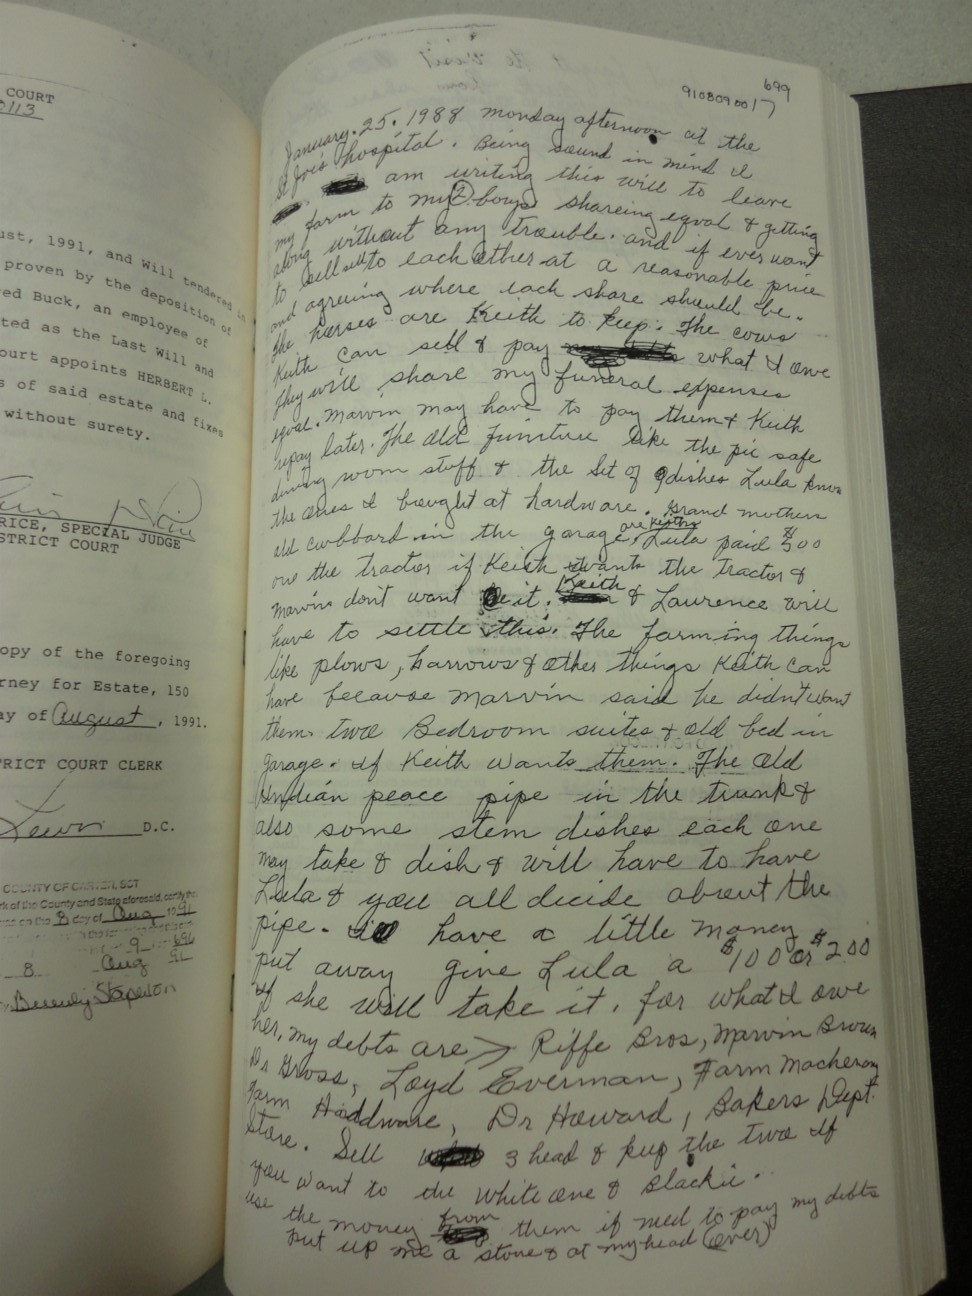 COURT
0113
ust, 1991, and Will tendered in
proven by the deposition of
red Buck, an employee of
ted as the Last Will and
ourt appoints HERBERT L.
s of said estate and fixes
without surety.
RICE, SPECIAL JUDGE
STRICT COURT
opy of the foregoing
rney for Estate, 150
ay of August, 1991.
TRICT COURT CLERK
D.C.
COUNTY OF CARTER, SCT
rk of the County and State aforesaid, certify the
on the 8 day of Aug 1991
9 696
8 Aug 91
Beverly Stapleton
699
9108090017
January. 25. 1988 monday afternoon at the
St Joe's hospital. Being sound in mind I
am writing this will to leave
my farm to my 2 boys shareing eqval & getting
along without any trouble. and if ever want
to sell out to each other at a reasonable price
and agreeing where each share should be.
the horses are Keith to keep. The cows
Keith can sell & pay what I owe
They will share my funeral expenses
eqval. Marvin may have to pay them & Keith
repay later. The old funiture like the pie safe
dining room stuff & the set of dishes Lula knows
the ones I bought at hardware. Grand mothers
old cubbard in the garage. are Keiths Lula paid $500
on the tractor if Keith wants the tractor &
Marvin don't want it. Keith & Laurence will
have to settle this. The farming things
like plows, harrows & other things Keith can
have because Marvin said he didn't want
them. two Bedroom suites & old bed in
garage. If Keith wants them. The old
Indian peace pipe in the trunk &
also some stem dishes each one
may take & dish & will have to have
Lula & you all decide about the
pipe. I have a little money
put away give Lula a $100 or $200
If she will take it. for what I owe
her, my debts are > Riffe Bros, Marvin Brown
Dr Gross, Loyd Everman, Farm Machenery
Farm Haddware, Dr Howard, Bakers Dept.
Store. Sell 3 head & keep the two If
you want to the white one & Blackie.
use the money from them if need to pay my debts
put up me a stone & at my head (over)